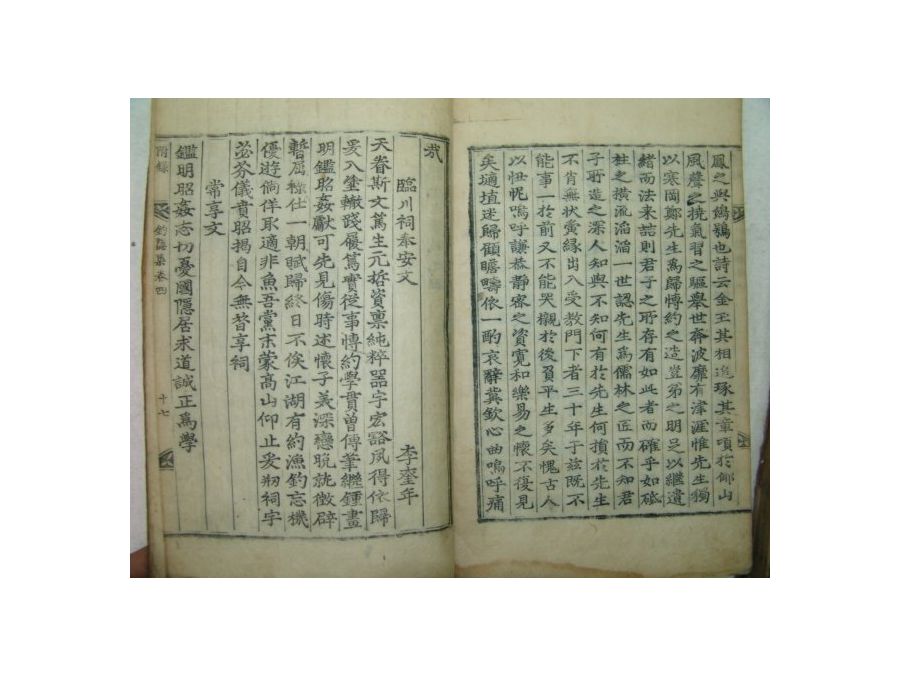 鳳之與鵷鶵也詩云金玉其相追琢其章項於鄒山
風聲之撓氣習之驅擧世奔波靡有津涯惟先生獨
以寒岡鄭先生爲歸慱約之造豈弟之明足以繼遺
緖而法来詰則君子之所存有如此者而確乎如砥
柱之横流滔滔一世認先生爲儒林之匠而不知君
子所造之深人知與不知何有於先生何損於先生
不肖無状夤緣出入受教門下者三十年于玆既不
能事一於前又不能哭襯於後負平生多矣愧古人
以忸怩嗚呼謙恭静密之資寬和樂易之懷不復見
矣擿埴迷歸顧瞻疇依一酌哀辭冀欽心曲嗚呼痛
哉
臨川祠奉安文
李奎年
天眷斯文篤生元哲資稟純粹器宇宏豁夙得依歸
爰入塗轍踐履篤實從事慱約學貫曽傳筆繼鍾畫
明鑑昭姦獻可先見傷時述懷子美深戀晩就徴辟
暫屈縻仕一朝賦歸終日不俟江湖有約漁釣忘機
優遊倘佯取適非魚吾黨末蒙高山仰止爰刱祠宇
苾芬儀賁昭揭自今無替享祠
常享文
鑑明昭姦志切憂國隱居求道誠正爲學
附錄
釣隱集卷四
十七